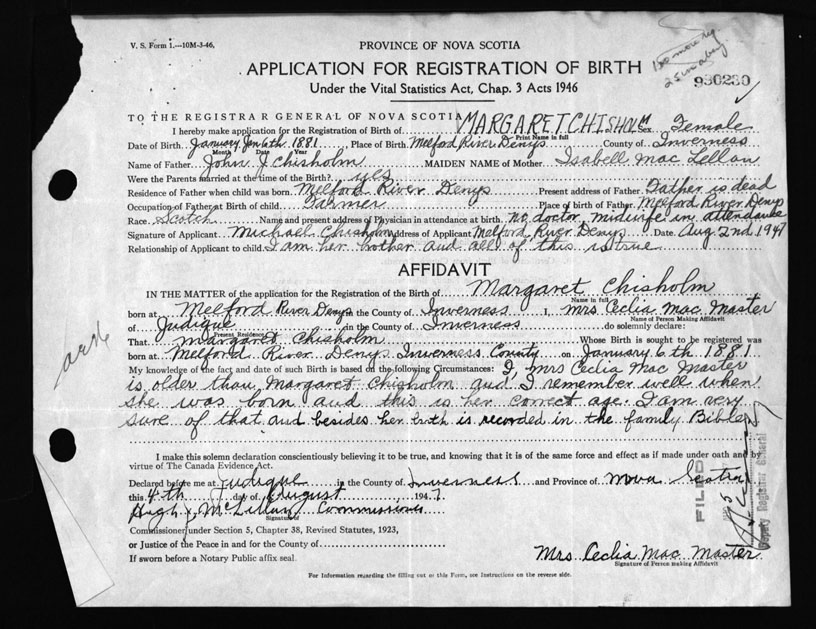 V. S. Form 1.—10M-3-46,
PROVINCE OF NOVA SCOTIA
APPLICATION FOR REGISTRATION OF BIRTH
Under the Vital Statistics Act, Chap. 3 Acts 1946
930230
TO THE REGISTRAR GENERAL OF NOVA SCOTIA
I hereby make application for the Registration of Birth of MARGARET CHISHOLM Sex Female
Print Name in full
Date of Birth January Jan 6th 1881 Place of Birth Melford River Denys County of Inverness
Month Date Year
Name of Father John J. Chisholm MAIDEN NAME of Mother Isabell Mac Lellan
Were the Parents married at the time of the Birth? yes
Residence of Father when child was born Melford River Denys Present address of Father Father is dead
Occupation of Father at Birth of child Farmer Place of birth of Father Melford River Denys
Race Scotch Name and present address of Physician in attendance at birth no doctor, midwife in attendance
Signature of Applicant Michael Chisholm Address of Applicant Melford River Denys Date Aug 2nd 1947
Relationship of Applicant to child I am her brother and all of this is true
AFFIDAVIT
IN THE MATTER of the application for the Registration of Birth of Margaret Chisholm
Name in full
born at Melford River Denys in the County of Inverness I, Mrs. Ceclia Mac Master
Name of Person Making Affidavit
of Judique in the County of Inverness do solemnly declare:
Present Residence
That Margaret Chisholm Whose Birth is sought to be registered was
born at Melford River Denys Inverness County on January 6th 1881
My knowledge of the fact and date of such Birth is based on the following Circumstances: I, Mrs Ceclia Mac Master
is older than Margaret Chisholm and I remember well when
she was born and this is her correct age. I am very
sure of that and besides her birth is recorded in the family Bible
I make this solemn declaration conscientiously believing it to be true, and knowing that it is of the same force and effect as if made under oath and by
virtue of The Canada Evidence Act.
Declared before me at Judique in the County of Inverness and Province of Nova Scotia
this 4th day of August 1947
Hugh J. McLellan Commissioner
Signature of
Commissioner under Section 5, Chapter 38, Revised Statutes, 1923,
or Justice of the Peace in and for the County of
If sworn before a Notary Public affix seal.
Mrs. Ceclia Mac Master
Signature of Person making Affidavit
For Information regarding the filling out of this Form, see Instructions on the reverse side.
FILED
Deputy Registrar General